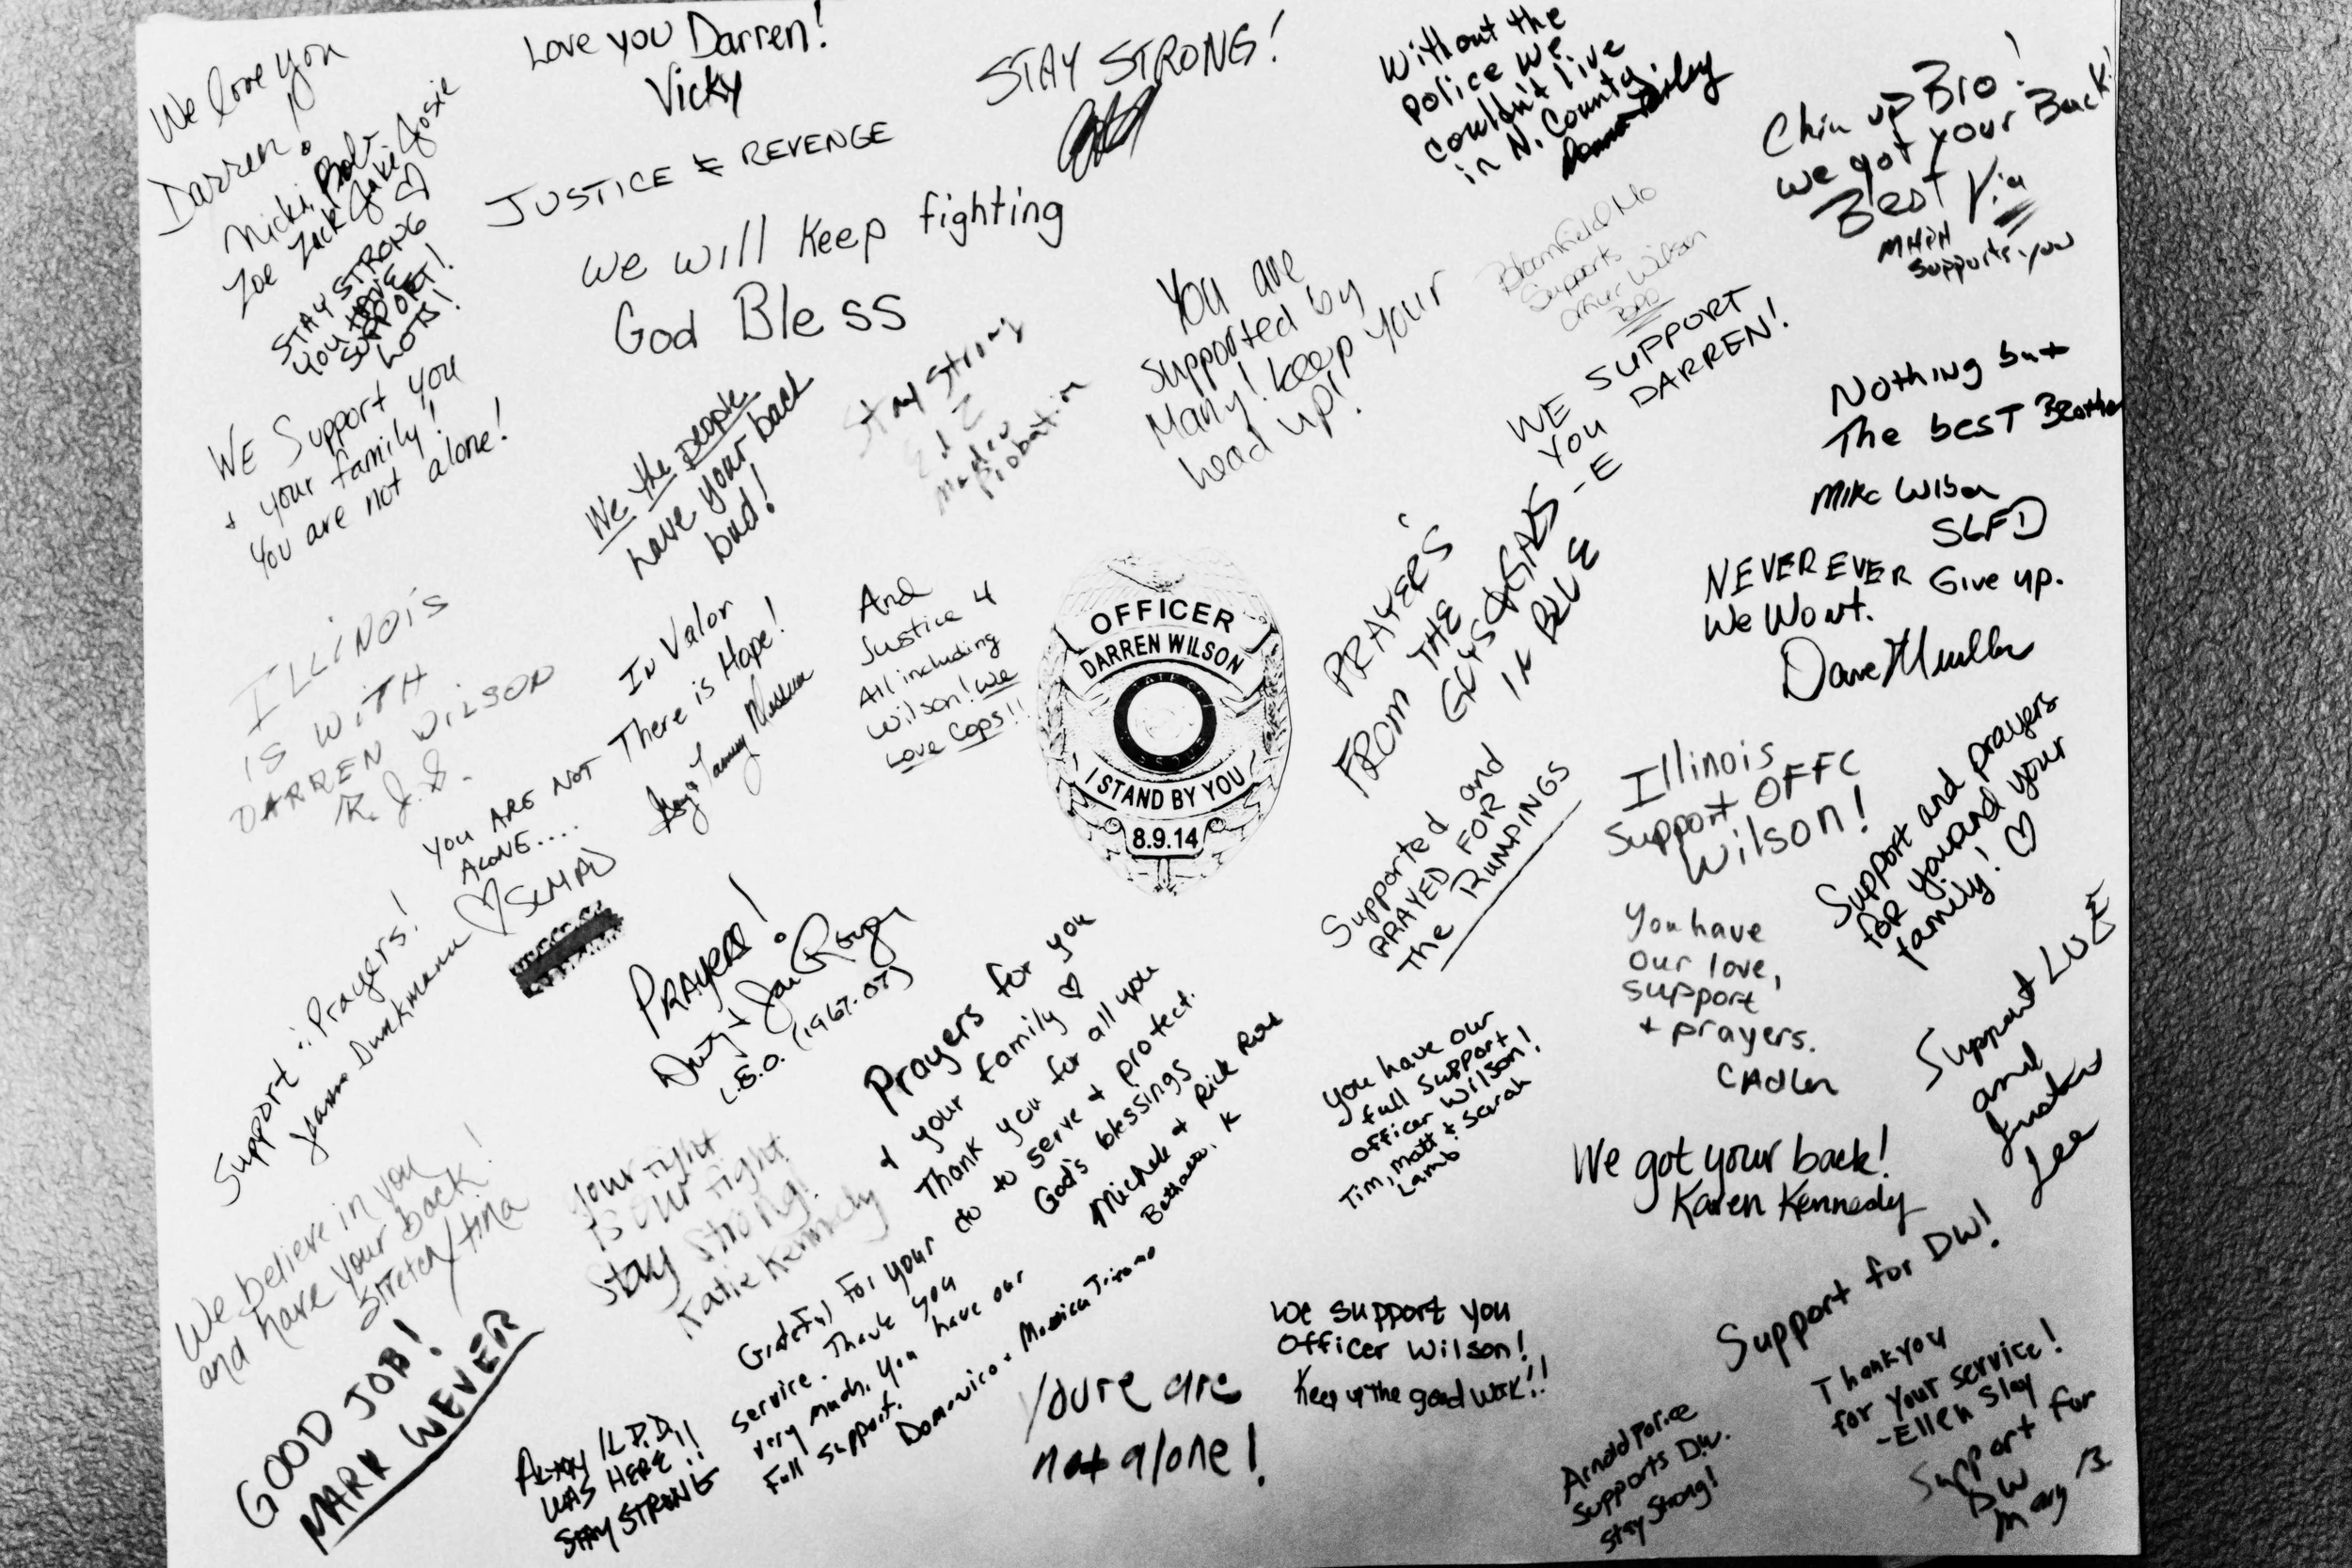 We love you
Darren!
Nicki, Bob
Zoe Zack Jake Josie
STAY STRONG
YOU HAVE
SUPPORT!
LOTS!
Love you Darren!
Vicky
STAY STRONG!
JUSTICE ≠ REVENGE
We will keep fighting
God Bless
Without the
police we
couldn't live
in N. County.
Chin up Bro!
we got your Back!
Best
supports you
Bloomfield Mo
Supports
Officer Wilson
You are
Supported by
Many! keep your
head up!
WE SUPPORT
YOU DARREN!
-E
Nothing but
The best
Mike Wilson
SLFD
NEVER EVER Give up.
We Wont.
Dave Mueller
WE Support you
+ your family!
You are not alone!
We the people
have your back
bud!
Stay Strong
Probation
ILLINOIS
IS WITH
DARREN WILSON
R. J. S.
In Valor
There is Hope!
And
Justice 4
All including
Wilson! We
Love Cops!!
OFFICER
DARREN WILSON
I STAND BY YOU
8.9.14
PRAYER'S
FROM THE
GUYS & GALS
IN BLUE
YOU ARE NOT
ALONE....
Supported and
PRAYED FOR
The RUMPINGS
Illinois
Support OFFC
Wilson!
Support and prayers
for you and your
family!
Support Prayers!
PRAYERS!
L.E.O. (1967-07)
Prayers for you
+ your family
Thank you for all you
do to serve + protect.
God's blessings
Michele + Rick
You have our
full support
Officer Wilson!
Tim, Matt & Sarah
Lamb
You have
our love,
support
+ prayers.
CAdler
Support LUE
and
We got your back!
Karen Kennedy
We believe in you
and have your back!
Your fight
is our fight
Stay Strong!
Katie Kennedy
GOOD JOB!
MARK WEVER
Grateful for your
service. Thank you
very much. You have our
full support.
WAS HERE!!
STAY STRONG
Youre are
not alone!
We support you
Officer Wilson!
Keep up the good work!!
Support for DW!
Thank you
for your service!
-Ellen Slay
Arnold Police
Supports D.W.
Stay Strong!
Support for
DW
Mary B.